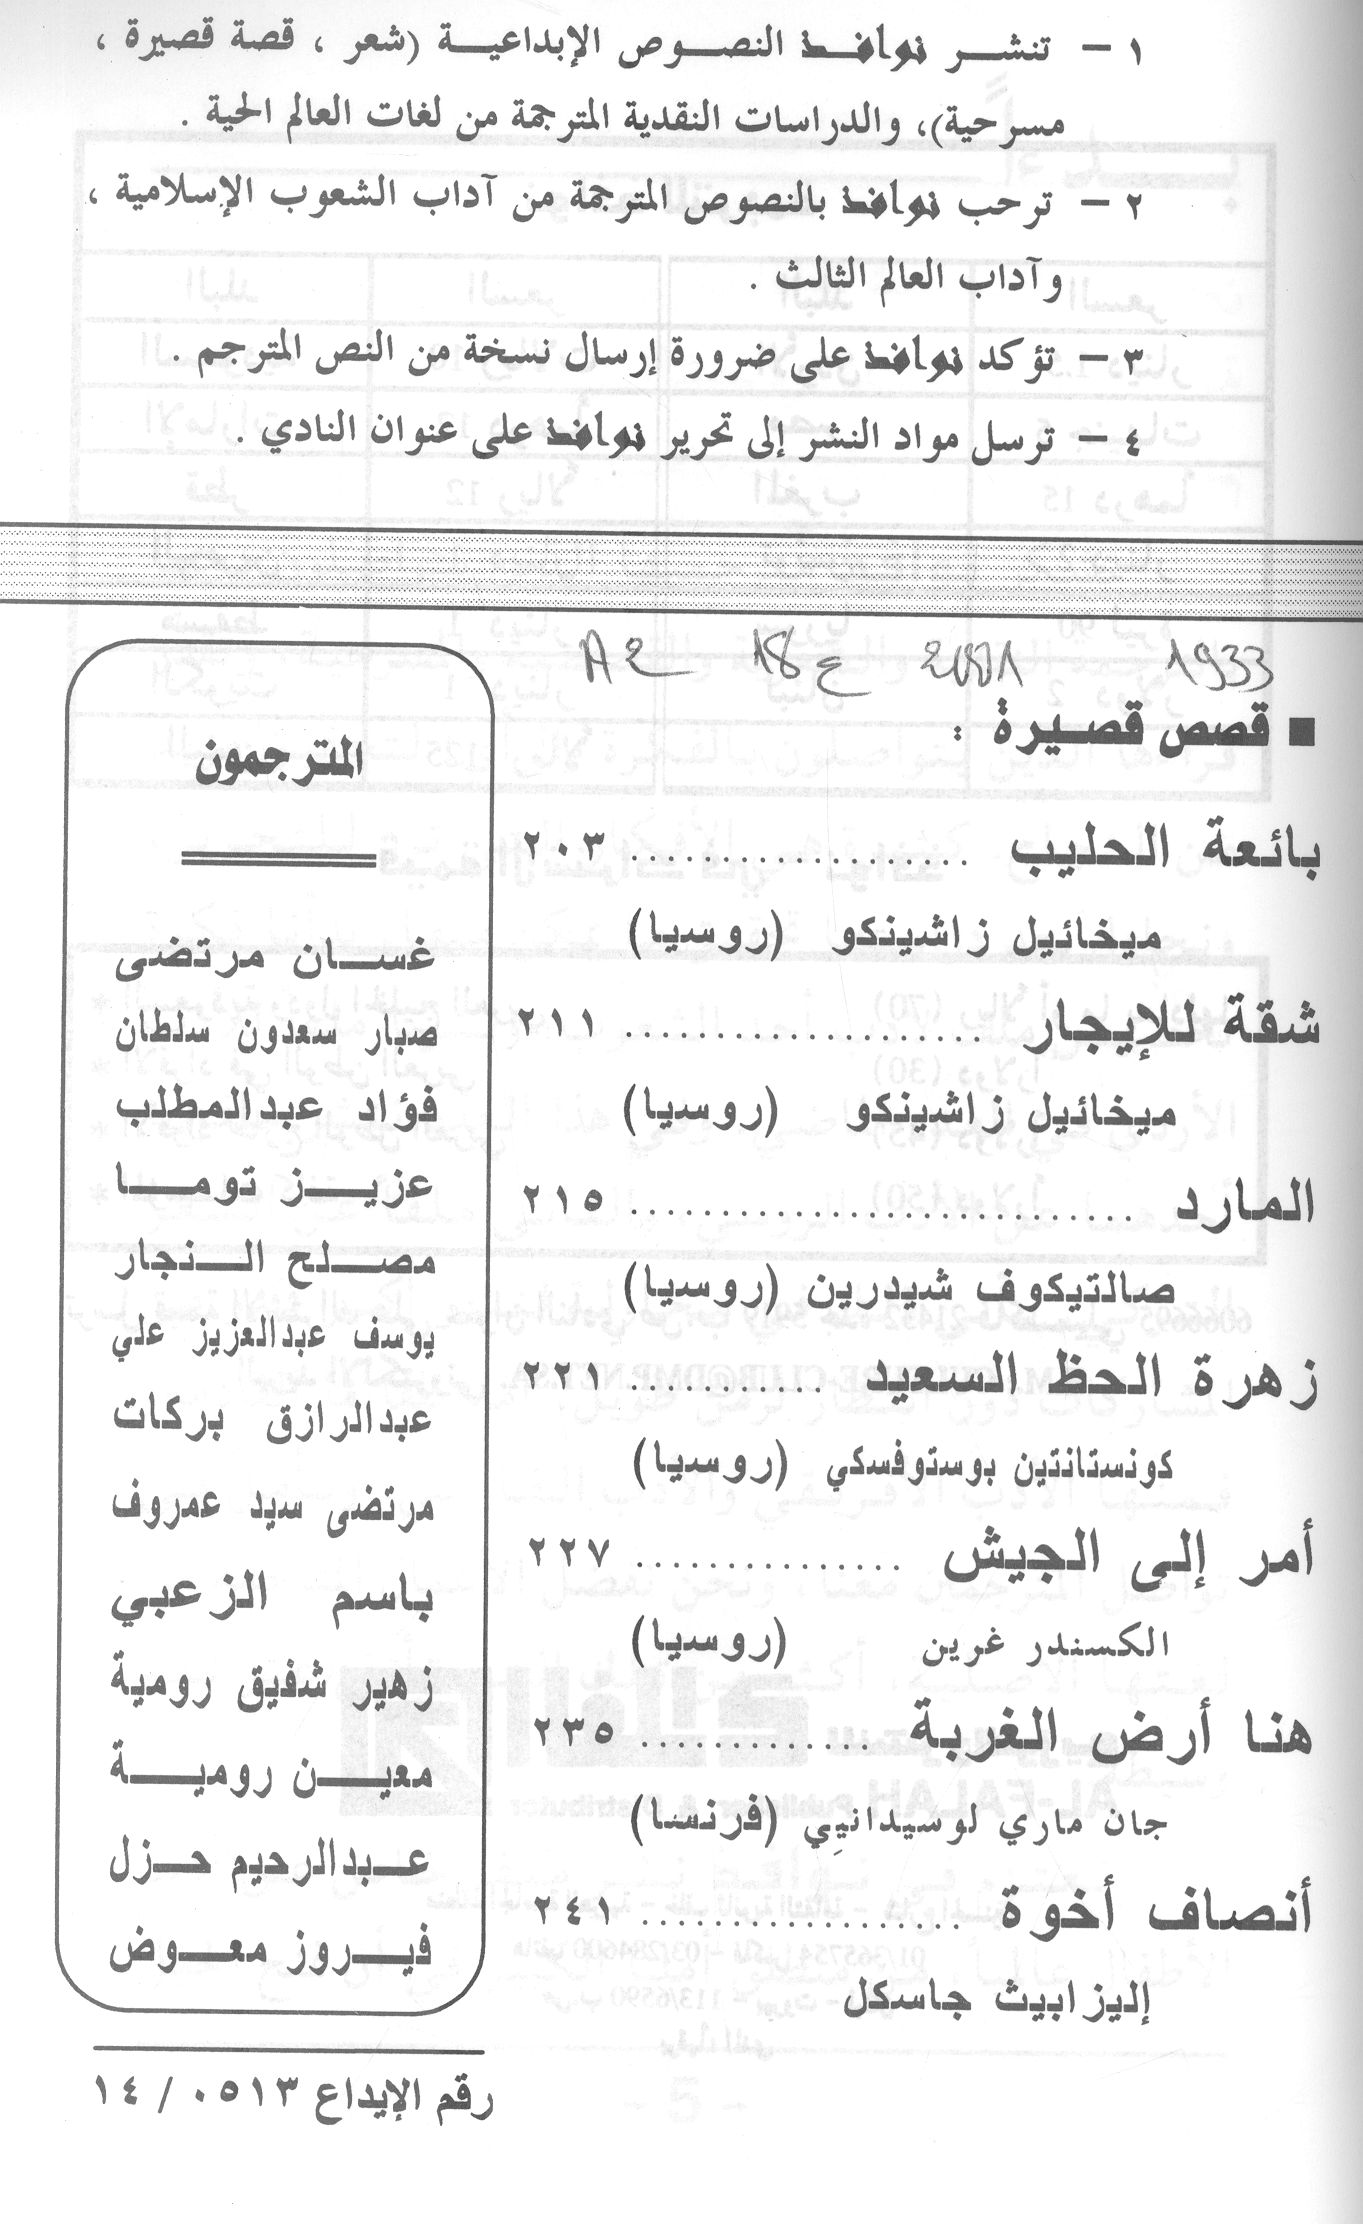 ١ – تنشر نوافذ النصوص الإبداعية (شعر ، قصة قصيرة ،
مسرحية)، والدراسات النقدية المترجمة من لغات العالم الحية .
٢ – ترحب نوافذ بالنصوص المترجمة من آداب الشعوب الإسلامية ،
وآداب العالم الثالث .
٣ – تؤكد نوافذ على ضرورة إرسال نسخة من النص المترجم .
٤ – ترسل مواد النشر إلى تحرير نوافذ على عنوان النادي .
A2 18ع 2001 1933
■ قصص قصيرة :
بائعة الحليب ................... ٢٠٣
ميخائيل زاشينكو (روسيا)
شقة للإيجار .................... ٢١١
ميخائيل زاشينكو (روسيا)
المارد ............................ ٢١٥
صالتيكوف شيدرين (روسيا)
زهرة الحظ السعيد ........... ٢٢١
كونستانتين بوستوفسكي (روسيا)
أمر إلى الجيش ............... ٢٢٧
الكسندر غرين (روسيا)
هنا أرض الغربة ............. ٢٣٥
جان ماري لوسيدانيي (فرنسا)
أنصاف أخوة .................. ٢٤١
إليزابيث جاسكل
المترجمون
غسان مرتضى
صبار سعدون سلطان
فؤاد عبدالمطلب
عزيز توما
مصلح النجار
يوسف عبدالعزيز علي
عبدالرازق بركات
مرتضى سيد عمروف
باسم الزعبي
زهير شفيق رومية
معين رومية
عبدالرحيم حزل
فيروز معوض
رقم الإيداع ٠٥١٣ / ١٤